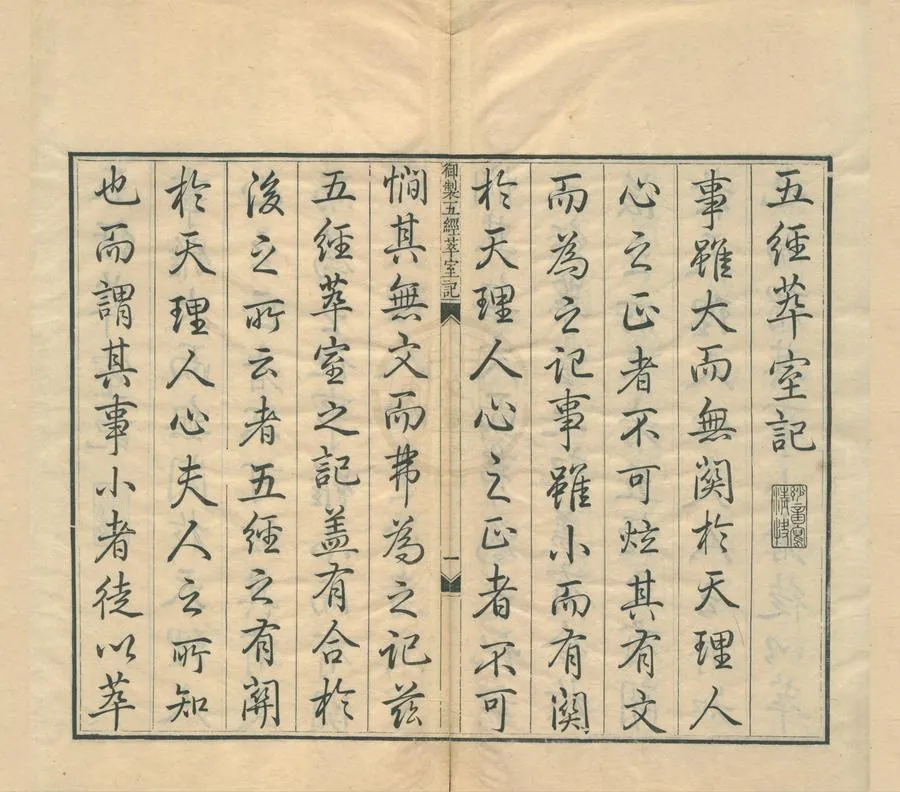 五經萃室記
事雖大而無関於天理人
心之正者不可炫其有文
而為之記事雖小而有関
於天理人心之正者不可
御製五經萃室記
一
憪其無文而弗為之記茲
五經萃室之記蓋有合於
後之所云者五經之有関
於天理人心夫人之所知
也而謂其事小者徒以萃